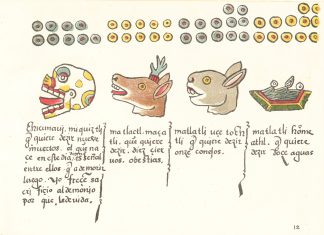 chicunavi, miquiztli
q̃ quiere dezir nueve
muertos. el que naçe
en este dia, es señal
entre ellos q̃ a de morir
luego.
por que, la de vida,
matlactl. maça
tli. que quiere
dezir. diez cier
vos. o bestias.
matlatli uçe toch
tli q̃ quiere dezir
onze conejos.
matlatli home
athl. q̃ quiere
dezir doze aguas
12